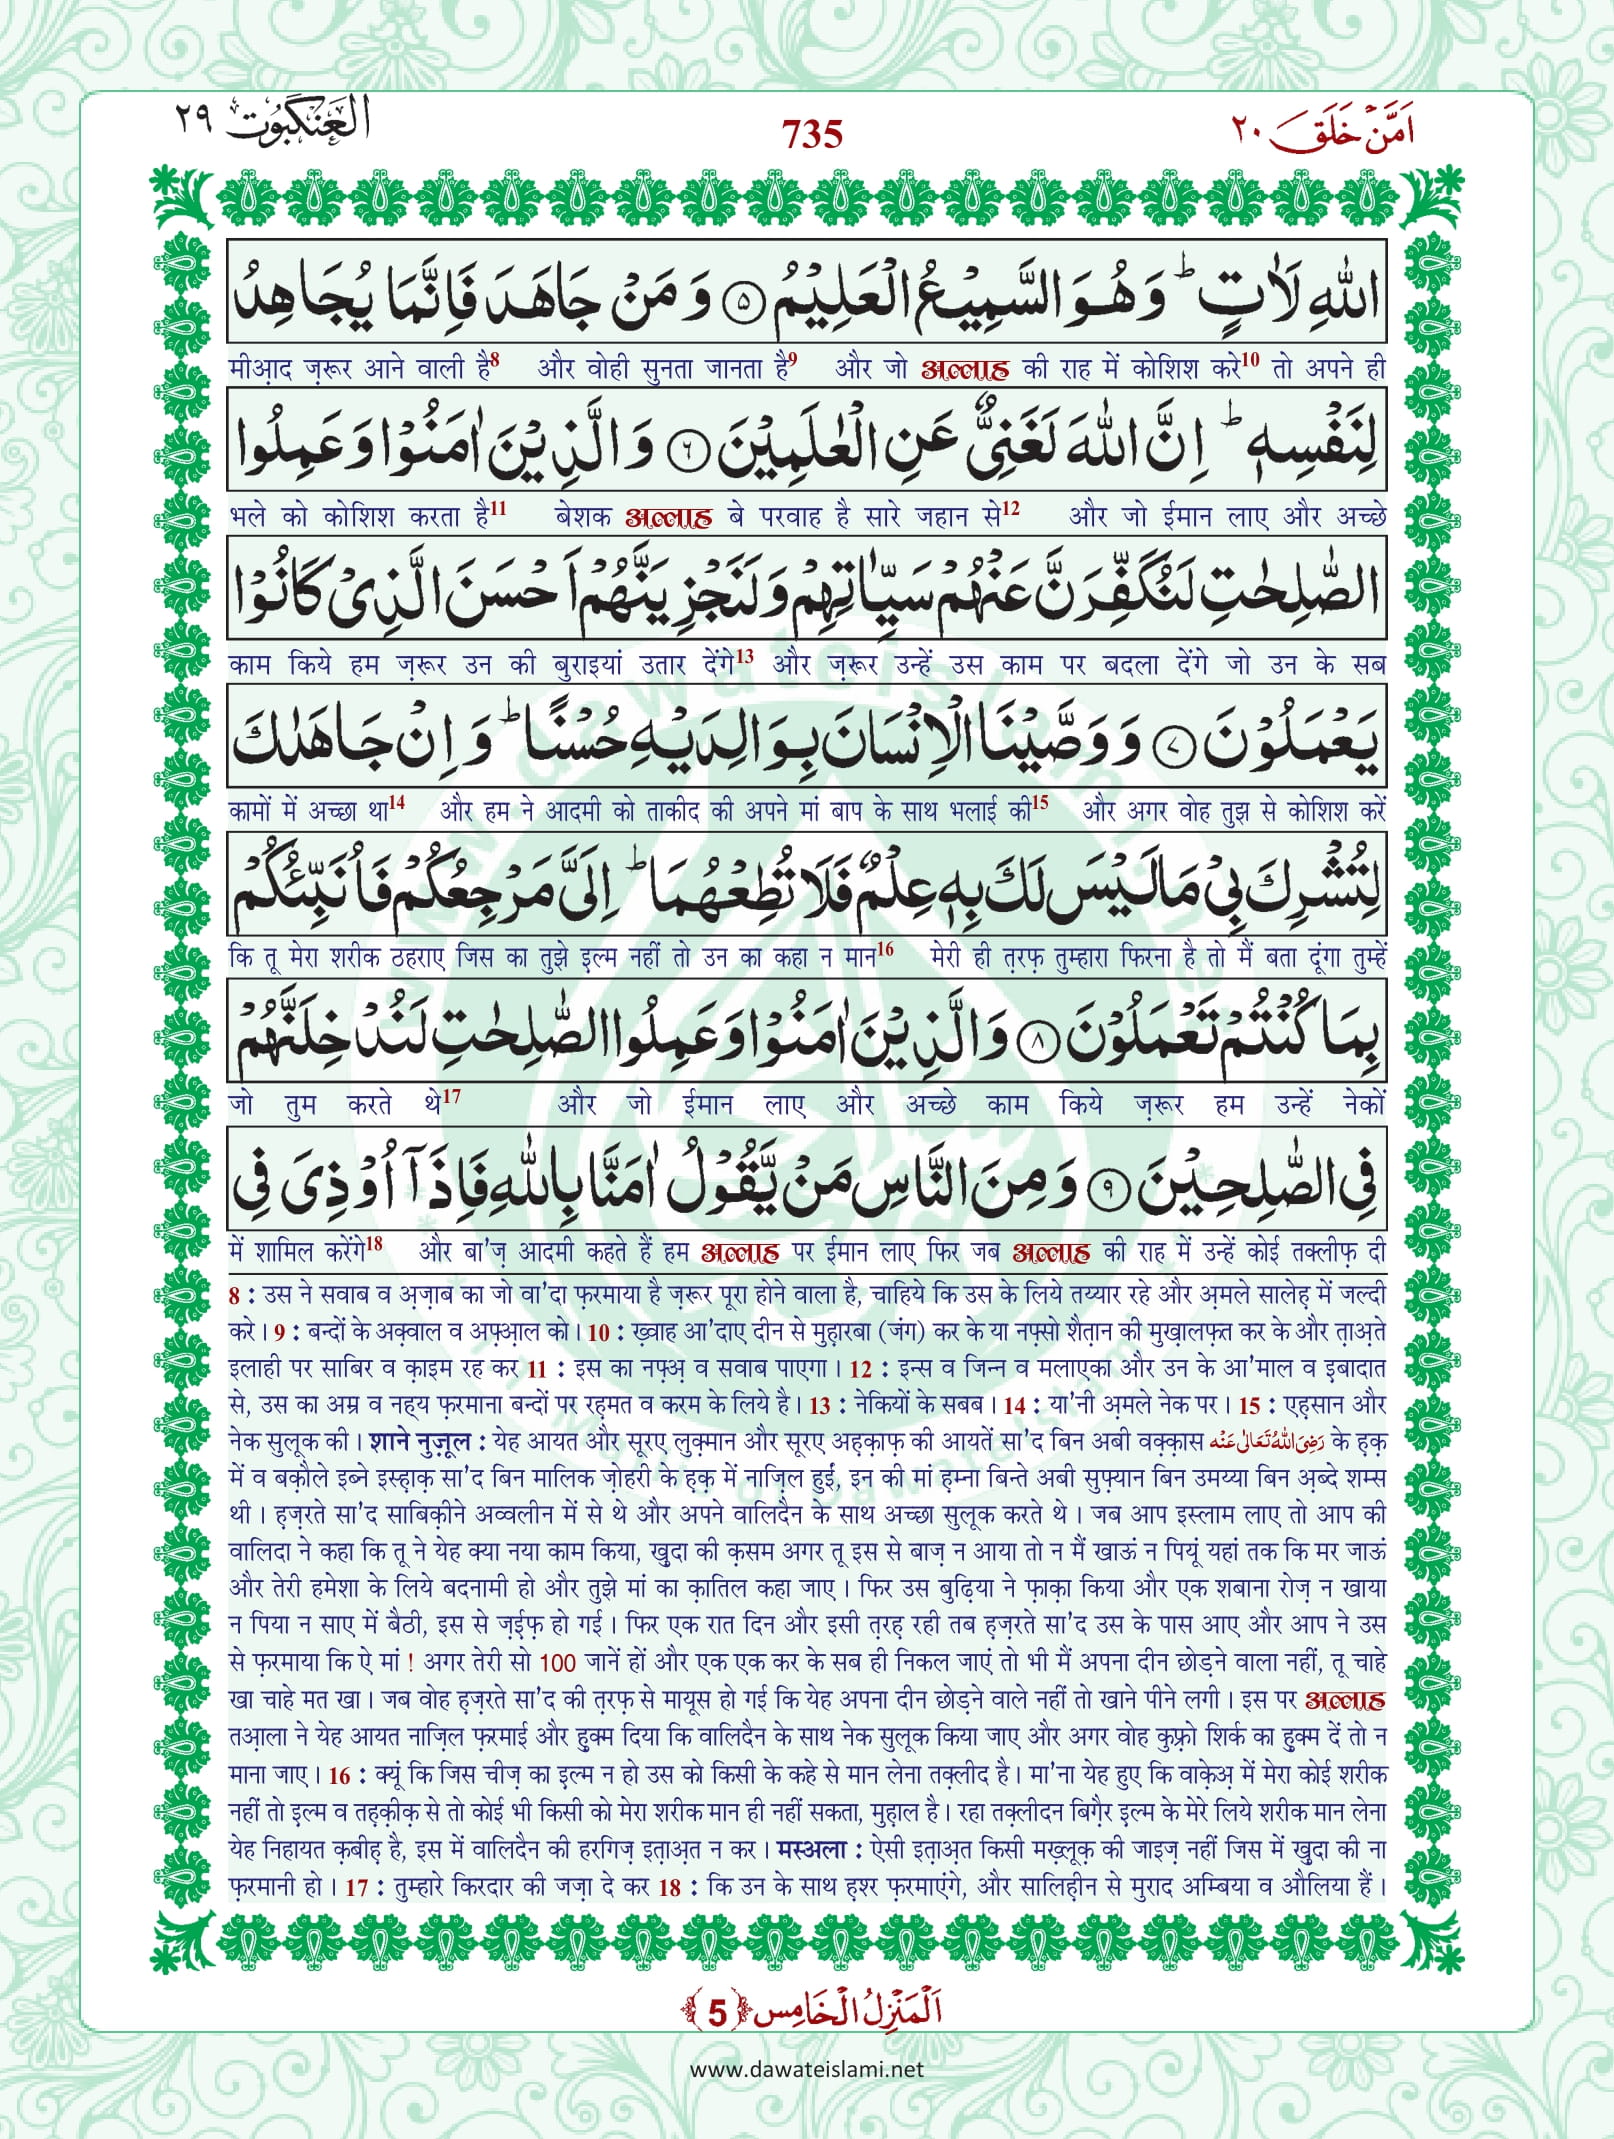 اَمَّنْ خَلَقَ ٢٠
735
الْعَنْكَبُوْت ٢٩
اللّٰهِ لَاٰتٍ ؕ وَ هُوَ السَّمِیْعُ الْعَلِیْمُ ۝۵ وَ مَنْ جَاهَدَ فَاِنَّمَا یُجَاهِدُ
मीआ़द ज़रूर आने वाली है8 और वोही सुनता जानता है9 और जो अल्लाह की राह में कोशिश करे10 तो अपने ही
لِنَفْسِهٖ ؕ اِنَّ اللّٰهَ لَغَنِیٌّ عَنِ الْعٰلَمِیْنَ ۝۶ وَ الَّذِیْنَ اٰمَنُوْا وَ عَمِلُوا
भले को कोशिश करता है11 बेशक अल्लाह बे परवाह है सारे जहान से12 और जो ईमान लाए और अच्छे
الصّٰلِحٰتِ لَنُكَفِّرَنَّ عَنْهُمْ سَیِّاٰتِهِمْ وَ لَنَجْزِیَنَّهُمْ اَحْسَنَ الَّذِیْ كَانُوْا
काम किये हम ज़रूर उन की बुराइयां उतार देंगे13 और ज़रूर उन्हें उस काम पर बदला देंगे जो उन के सब
یَعْمَلُوْنَ ۝۷ وَ وَصَّیْنَا الْاِنْسَانَ بِوَالِدَیْهِ حُسْنًا ؕ وَ اِنْ جَاهَدٰكَ
कामों में अच्छा था14 और हम ने आदमी को ताकीद की अपने मां बाप के साथ भलाई की15 और अगर वोह तुझ से कोशिश करें
لِتُشْرِكَ بِیْ مَا لَیْسَ لَكَ بِهٖ عِلْمٌ فَلَا تُطِعْهُمَا ؕ اِلَیَّ مَرْجِعُكُمْ فَاُنَبِّئُكُمْ
कि तू मेरा शरीक ठहराए जिस का तुझे इल्म नहीं तो उन का कहा न मान16 मेरी ही त़रफ़ तुम्हारा फिरना है तो मैं बता दूंगा तुम्हें
بِمَا كُنْتُمْ تَعْمَلُوْنَ ۝۸ وَ الَّذِیْنَ اٰمَنُوْا وَ عَمِلُوا الصّٰلِحٰتِ لَنُدْخِلَنَّهُمْ
जो तुम करते थे17 और जो ईमान लाए और अच्छे काम किये ज़रूर हम उन्हें नेकों
فِی الصّٰلِحِیْنَ ۝۹ وَ مِنَ النَّاسِ مَنْ یَّقُوْلُ اٰمَنَّا بِاللّٰهِ فَاِذَاۤ اُوْذِیَ فِی
में शामिल करेंगे18 और बा'ज़ आदमी कहते हैं हम अल्लाह पर ईमान लाए फिर जब अल्लाह की राह में उन्हें कोई तक्लीफ़ दी
8 : उस ने सवाब व अ़ज़ाब का जो वा'दा फ़रमाया है ज़रूर पूरा होने वाला है, चाहिये कि उस के लिये तय्यार रहे और अ़मले सालेह़ में जल्दी
करे। 9 : बन्दों के अक़्वाल व अफ़्आ़ल को। 10 : ख़्वाह आ'दाए दीन से मुह़ारबा (जंग) कर के या नफ़्सो शैत़ान की मुख़ालफ़त कर के और त़ाअ़ते
इलाही पर साबिर व क़ाइम रह कर 11 : इस का नफ़्अ़ व सवाब पाएगा। 12 : इन्स व जिन्न व मलाएका और उन के आ'माल व इ़बादात
से, उस का अम्र व नह्य फ़रमाना बन्दों पर रह़मत व करम के लिये है। 13 : नेकियों के सबब। 14 : या'नी अ़मले नेक पर। 15 : एह़सान और
नेक सुलूक की। शाने नुज़ूल : येह आयत और सूरए लुक़्मान और सूरए अह़क़ाफ़ की आयतें सा'द बिन अबी वक़्क़ास رَضِیَ اللّٰهُ تَعَالٰی عَنْه के ह़क़
में व बक़ौले इब्ने इस्ह़ाक़ सा'द बिन मालिक ज़ोहरी के ह़क़ में नाज़िल हुईं, इन की मां ह़म्ना बिन्ते अबी सुफ़्यान बिन उमय्या बिन अ़ब्दे शम्स
थी। ह़ज़रते सा'द साबिक़ीने अव्वलीन में से थे और अपने वालिदैन के साथ अच्छा सुलूक करते थे। जब आप इस्लाम लाए तो आप की
वालिदा ने कहा कि तू ने येह क्या नया काम किया, ख़ुदा की क़सम अगर तू इस से बाज़ न आया तो न मैं खाऊं न पियूं यहां तक कि मर जाऊं
और तेरी हमेशा के लिये बदनामी हो और तुझे मां का क़ातिल कहा जाए। फिर उस बुढ़िया ने फ़ाक़ा किया और एक शबाना रोज़ न खाया
न पिया न साए में बैठी, इस से ज़ई़फ़ हो गई। फिर एक रात दिन और इसी त़रह़ रही तब ह़ज़रते सा'द उस के पास आए और आप ने उस
से फ़रमाया कि ऐ मां ! अगर तेरी सो 100 जानें हों और एक एक कर के सब ही निकल जाएं तो भी मैं अपना दीन छोड़ने वाला नहीं, तू चाहे
खा चाहे मत खा। जब वोह ह़ज़रते सा'द की त़रफ़ से मायूस हो गई कि येह अपना दीन छोड़ने वाले नहीं तो खाने पीने लगी। इस पर अल्लाह
तआ़ला ने येह आयत नाज़िल फ़रमाई और हु़क्म दिया कि वालिदैन के साथ नेक सुलूक किया जाए और अगर वोह कुफ़्रो शिर्क का हु़क्म दें तो न
माना जाए। 16 : क्यूं कि जिस चीज़ का इ़ल्म न हो उस को किसी के कहे से मान लेना तक़्लीद है। मा'ना येह हुए कि वाक़ेअ़ में मेरा कोई शरीक
नहीं तो इ़ल्म व तह़क़ीक़ से तो कोई भी किसी को मेरा शरीक मान ही नहीं सकता, मुह़ाल है। रहा तक़्लीदन बिग़ैर इ़ल्म के मेरे लिये शरीक मान लेना
येह निहायत क़बीह़ है, इस में वालिदैन की हरगिज़ इत़ाअ़त न कर। मस्अला : ऐसी इत़ाअ़त किसी मख़्लूक़ की जाइज़ नहीं जिस में ख़ुदा की ना
फ़रमानी हो। 17 : तुम्हारे किरदार की जज़ा दे कर 18 : कि उन के साथ ह़श्र फ़रमाएंगे, और सालिह़ीन से मुराद अम्बिया व औलिया हैं।
اَلْمَنْزِلُ الْخَامِس ﴿5﴾
www.dawateislami.net